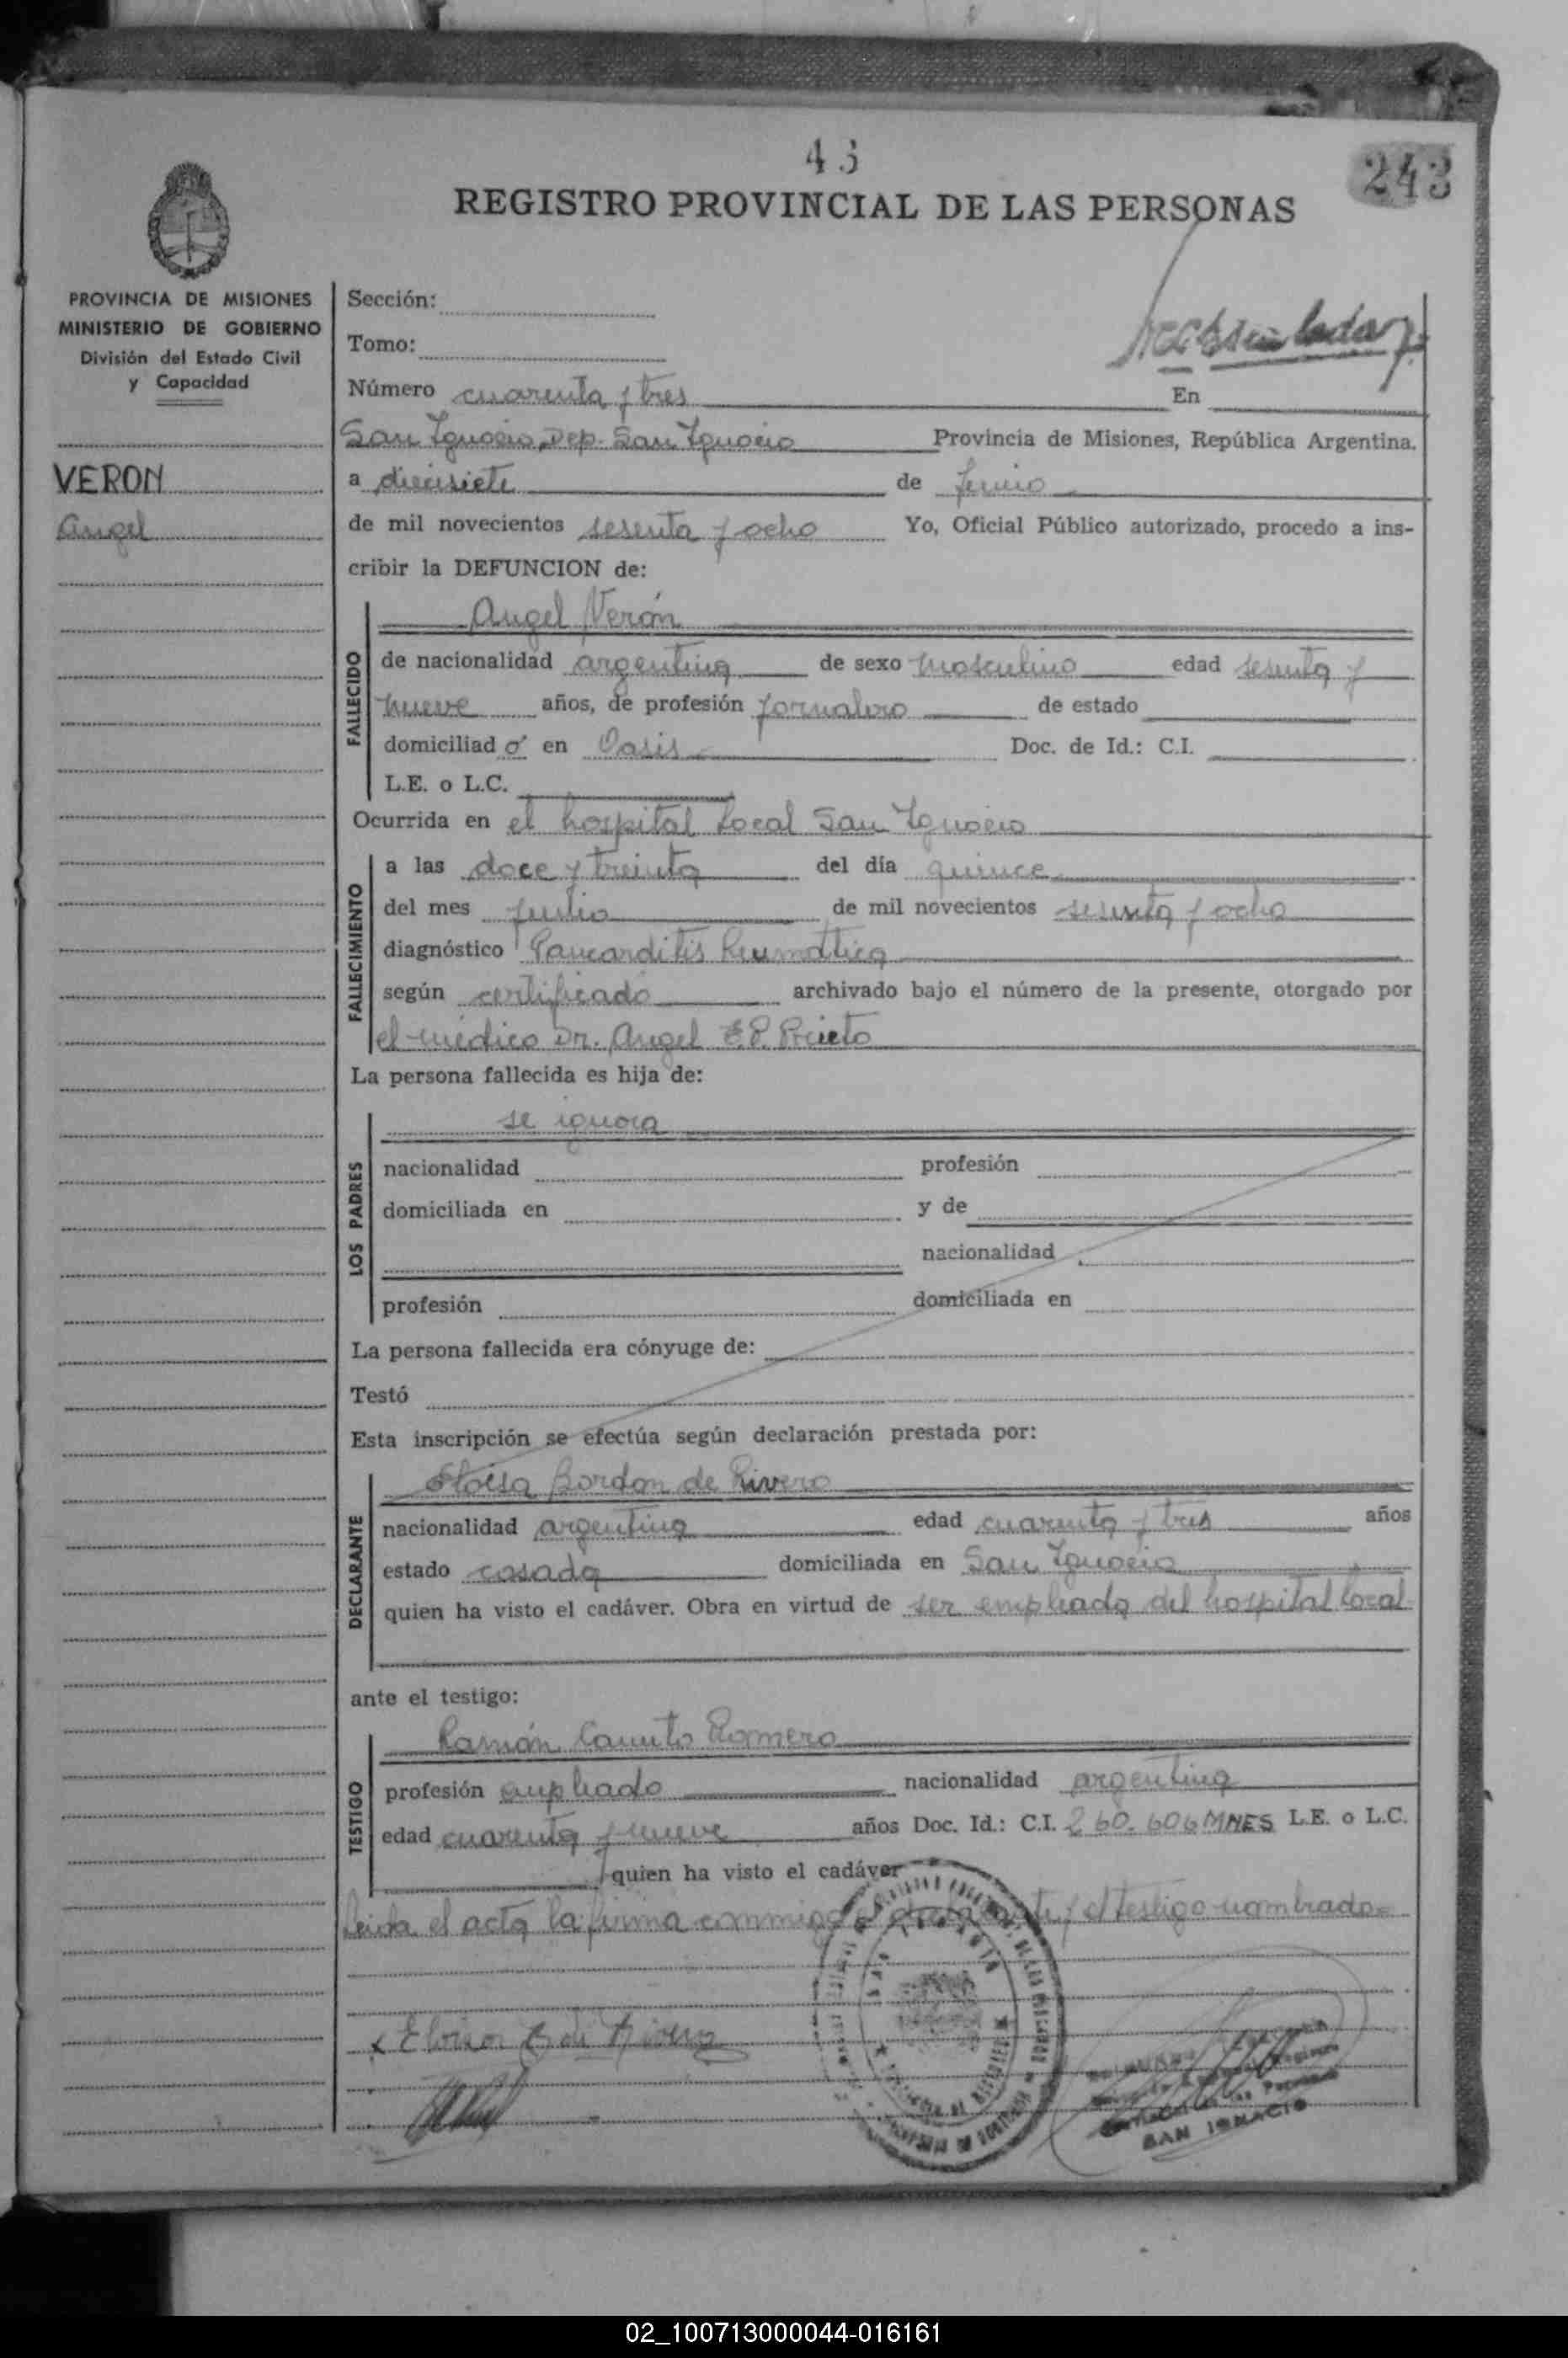 43
243
REGISTRO PROVINCIAL DE LAS PERSONAS
PROVINCIA DE MISIONES
MINISTERIO DE GOBIERNO
División del Estado Civil
y Capacidad
VERON
Angel
Sección:
Tomo:
Número cuarenta y tres En
San Ignacio Dep. San Ignacio Provincia de Misiones, República Argentina.
a diecisiete de Junio
de mil novecientos sesenta y ocho Yo, Oficial Público autorizado, procedo a ins-
cribir la DEFUNCION de:
FALLECIDO
Angel Verón
de nacionalidad argentina de sexo masculino edad sesenta y
nueve años, de profesión jornalero de estado
domiciliado en Oasis Doc. de Id.: C.I.
L.E. o L.C.
Ocurrida en el hospital local San Ignacio
FALLECIMIENTO
a las doce y treinta del día quince
del mes Junio de mil novecientos sesenta y ocho
diagnóstico Pancarditis Reumática
según certificado archivado bajo el número de la presente, otorgado por
el médico Dr. Angel E.P. Prieto
La persona fallecida es hija de:
LOS PADRES
se ignora
nacionalidad profesión
domiciliada en y de
nacionalidad
profesión domiciliada en
La persona fallecida era cónyuge de:
Testó
Esta inscripción se efectúa según declaración prestada por:
DECLARANTE
Eloisa Bordon de Rivero
nacionalidad argentina edad cuarenta y tres años
estado casada domiciliada en San Ignacio
quien ha visto el cadáver. Obra en virtud de ser empleada del hospital local
ante el testigo:
TESTIGO
Ramón Canuto Romero
profesión empleado nacionalidad argentina
edad cuarenta y nueve años Doc. Id.: C.I. 260.606 MNES L.E. o L.C.
quien ha visto el cadáver
Leida el acta la firma conmigo y el testigo nombrado=
SAN IGNACIO
02_100713000044-016161